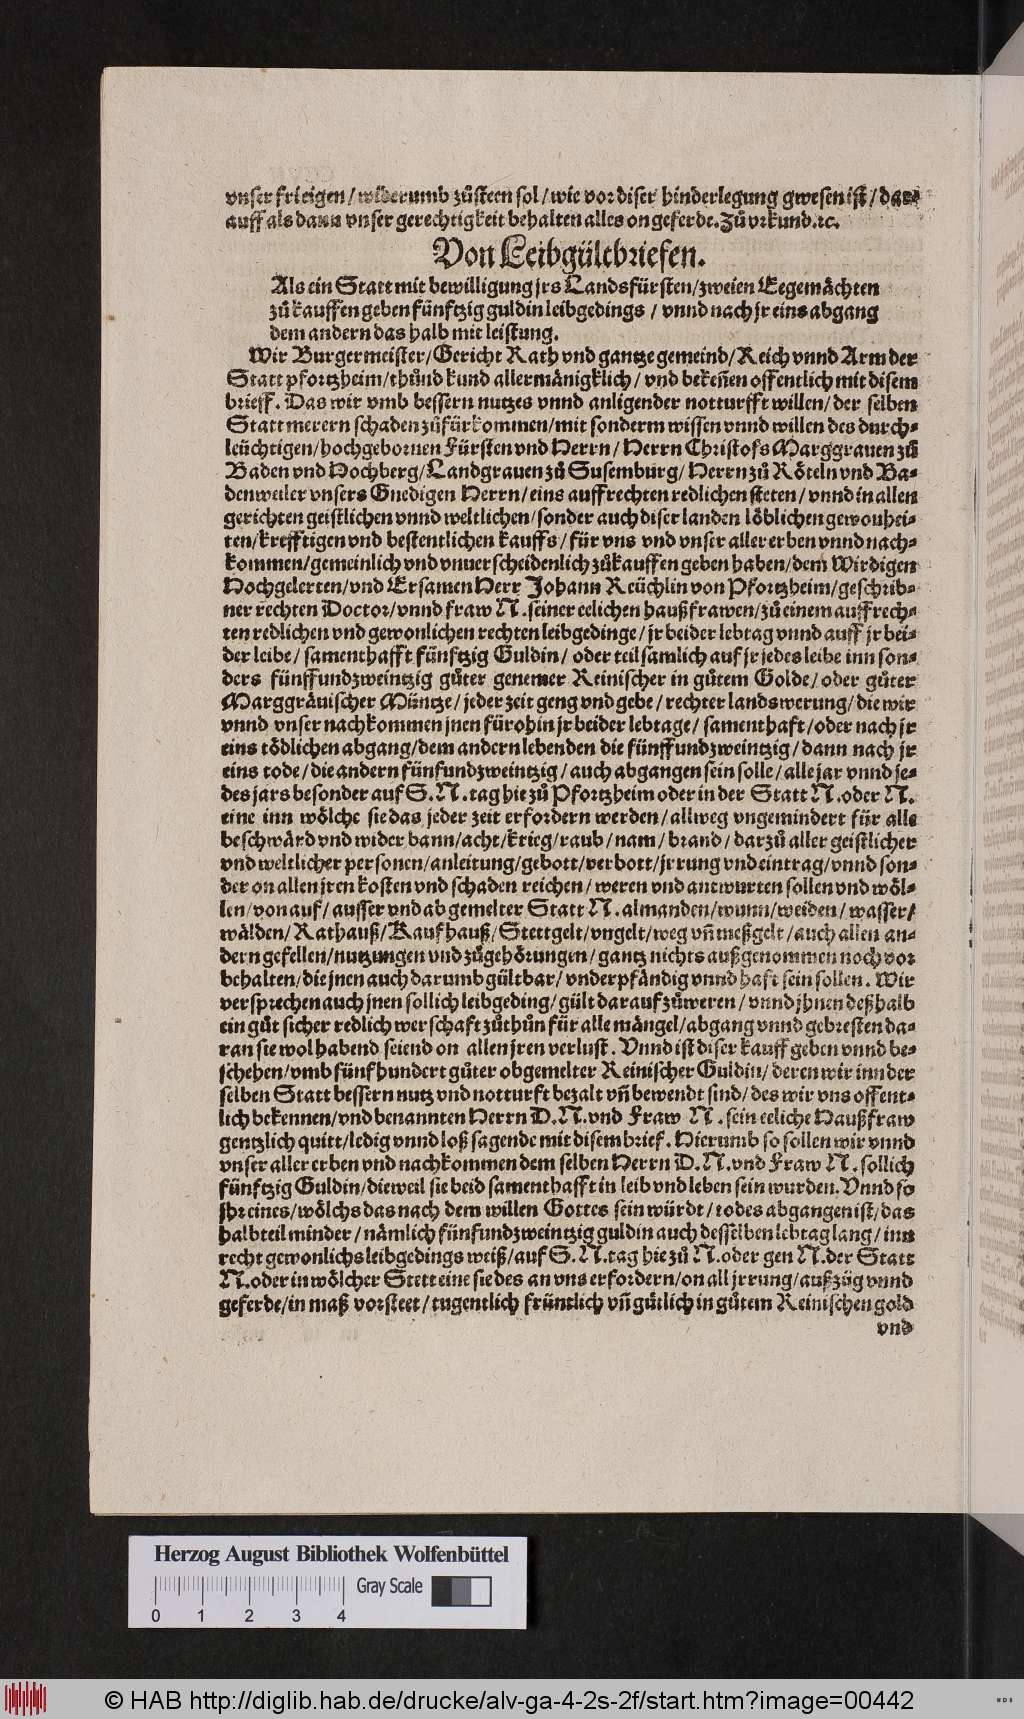 vnser frieigen / widerumb zuͦ steen sol / wie vor diser hinderlegung gwesen ist / dar-
auff als dann vnser gerechtigkeit behalten alles on geferde. Zuͦ vrkund. ꝛc.
Von Leibgültbriefen.
Als ein Statt mit bewilligung jrs Landsfürsten/zweien Eegemaͤchten
zuͦ kauffen geben fünfftzig guldin leibgedings / vnnd nach jr eins abgang
dem andern das halb mit leistung.
Wir Burgermeister/Gericht Rath vnd gantze gemeind/Reich vnnd Arm der
Statt pfortzheim/thuͦnd kund allermaͤnigklich / vnd bekeñen offentlich mit disem
brieff. Das wir vmb bessern nutzes vnnd anligender notturfft willen/ der selben
Statt merern schaden zuͦfürkommen/mit sonderm wissen vnnd willen des durch-
leüchtigen/hochgebornen Fürsten vnd Herrn / Herrn Christofs Marggrauen zuͦ
Baden vnd Hochberg/Landgrauen zuͦ Susemburg/ Herrn zuͦ Roͤteln vnd Ba-
denweiler vnsers Gnedigen Herrn/eins auffrechten redlichen steten / vnnd in allen
gerichten geistlichen vnnd weltlichen/sonder auch diser landen loͤblichen gewonhei-
ten/krefftigen vnd bestentlichen kauffs / für vns vnd vnser aller erben vnnd nach-
kommen/gemeinlich vnd vnuerscheidenlich zuͦkauffen geben haben/dem Wirdigen
Hochgelerten/vnd Ersamen Herr Johann Reüchlin von Pfortzheim/geschrib-
ner rechten Doctor/vnnd fraw N. seiner eelichen haußfrawen/zuͦ einem auffrech-
ten redlichen vnd gewonlichen rechten leibgedinge / jr beider lebtag vnnd auff jr bei-
der leibe / samenthafft fünfftzig Guldin/ oder teilsamlich auf jr jedes leibe inn son-
ders fünffundzweintzig guͦter genemer Reinischer in guͦtem Golde / oder guͦter
Marggraͤuischer Müntze / jeder zeit geng vnd gebe / rechter landswerung/ die wir
vnnd vnser nachkommen jnen fürohin jr beider lebtage / samenthaft /oder nach jr
eins toͤdlichen abgang/dem andern lebenden die fünffundzweintzig / dann nach jr
eins tode / die andern fünfundzweintzig / auch abgangen sein solle / alle jar vnnd je-
des jars besonder auf S. N. tag hie zuͦ Pfortzheim oder in der Statt N. oder N.
eine inn woͤlche sie das jeder zeit erfordern werden / allweg vngemindert für alle
beschwaͤrd vnd wider bann/acht/krieg/raub / nam / brand / darzuͦ aller geistlicher
vnd weltlicher personen/anleitung/gebott/verbott/jrrung vnd eintrag/vnnd son-
der on allen jren kosten vnd schaden reichen / weren vnd antwurten sollen vnd woͤl-
len/von auf / ausser vnd ab gemelter Statt N. almanden/wunn/weiden / wasser/
waͤlden/Rathauß/Kaufhauß/Stettgelt/vngelt/weg vñ meßgelt /auch allen an-
dern gefellen/nutzungen vnd zuͦgehoͤrungen / gantz nichts außgenommen noch vor
behalten/die jnen auch darumb gültbar/ vnderpfaͤndig vnnd haft sein sollen. Wir
versprechen auch jnen sollich leibgeding/gült darauf zuͦweren / vnnd jhnen deßhalb
ein guͦt sicher redlich werschaft zuͦthuͦn für alle maͤngel/abgang vnnd gebresten da-
ran sie wol habend seiend on allen jren verlust. Vnnd ist diser kauff geben vnnd be-
schehen/vmb fünfhundert guͦter obgemelter Reinischer Guldin/ deren wir inn der
selben Statt bessern nutz vnd notturft bezalt vñ bewendt sind/des wir vns offent-
lich bekennen/vnd benannten Herrn D. N. vnd Fraw N. sein eeliche Haußfraw
gentzlich quitt/ledig vnnd loß sagende mit disem brief. Hierumb so sollen wir vnnd
vnser aller erben vnd nachkommen dem selben Herrn D. N. vnd Fraw N. sollich
fünfftzig Guldin/dieweil sie beid samenthafft in leib vnd leben sein wurden. Vnnd so
jhr eines/woͤlchs das nach dem willen Gottes sein würdt / todes abgangen ist/das
halbteil minder / naͤmlich fünfundzweintzig guldin auch desselben lebtag lang / inn
recht gewonlichs leibgedings weiß/auf S. N. tag hie zuͦ N. oder gen N. der Statt
N. oder in woͤlcher Stett eine sie des an vns erfordern/on all jrrung/außzüg vnnd
geferde/in maß vorsteet / tugentlich früntlich vñ guͤtlich in guͦtem Reinischen gold
vnd
Herzog August Bibliothek Wolfenbüttel
Gray Scale
0 1 2 3 4
© HAB http://diglib.hab.de/drucke/alv-ga-4-2s-2f/start.htm?image=00442